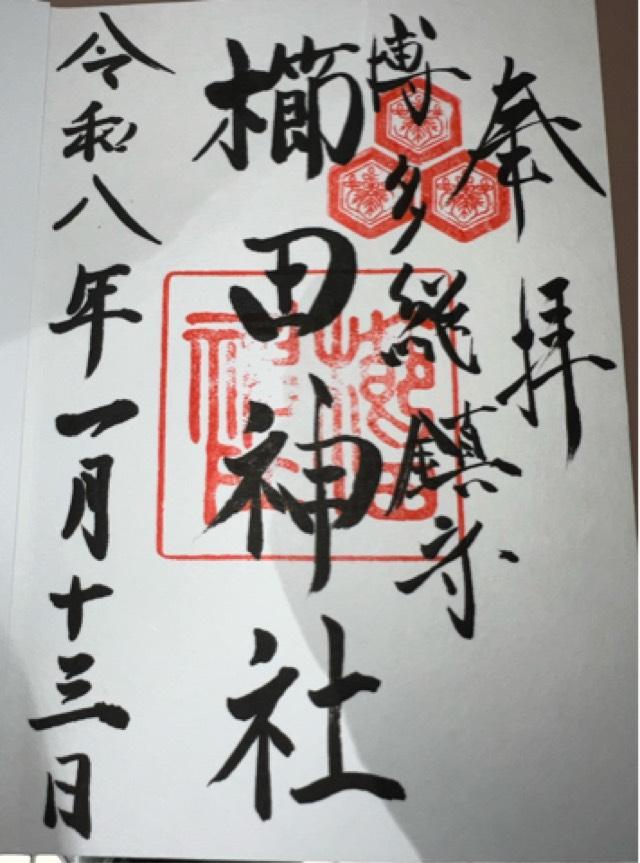 奉拝
博多総鎮守
櫛田神社
令和八年一月十三日